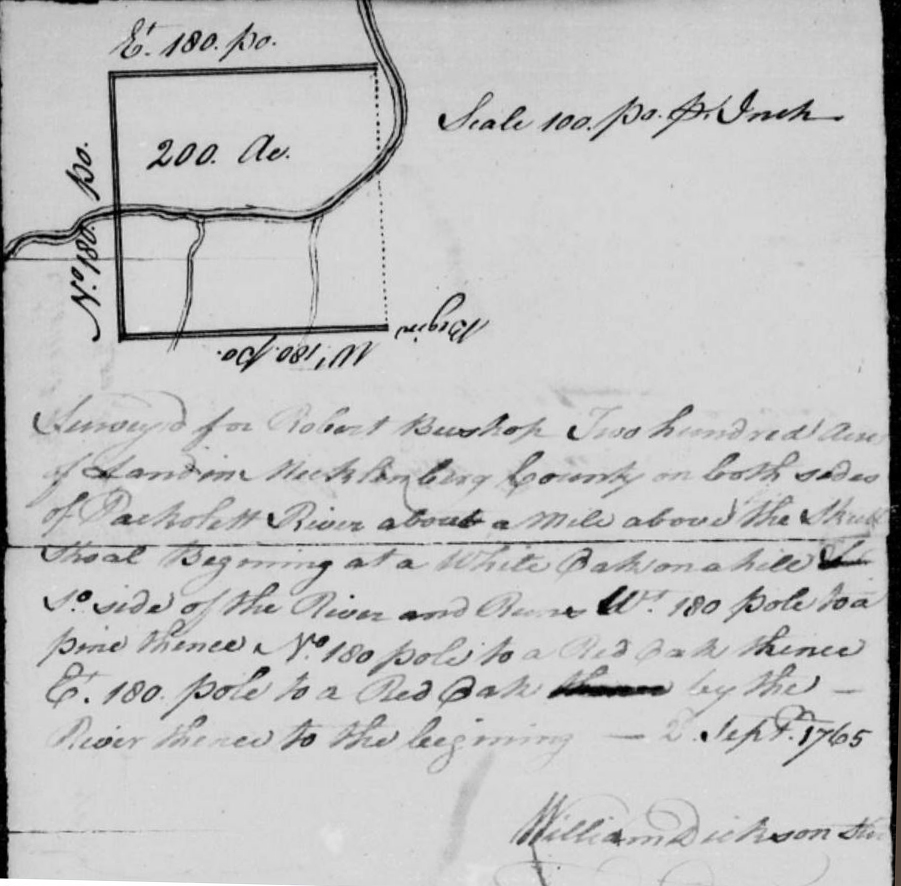 Et. 180. po.
Scale 100. po. pr. Inch
200. Ac.
No. 180. po.
Begin
Wt. 180. po.
Survey'd for Robert Bushop Two hundred Acres
of Land in Mecklenberg County on both sides
of Packolett River about a Mile above the Skull
Shoal Begining at a White Oak on a hill
So. side of the River and Runs Wt. 180 pole to a
pine thence No. 180 pole to a Red Oak thence
Et. 180. pole to a Red Oak by the —
River thence to the begining — 2. Sept. 1765
William Dickson Sur